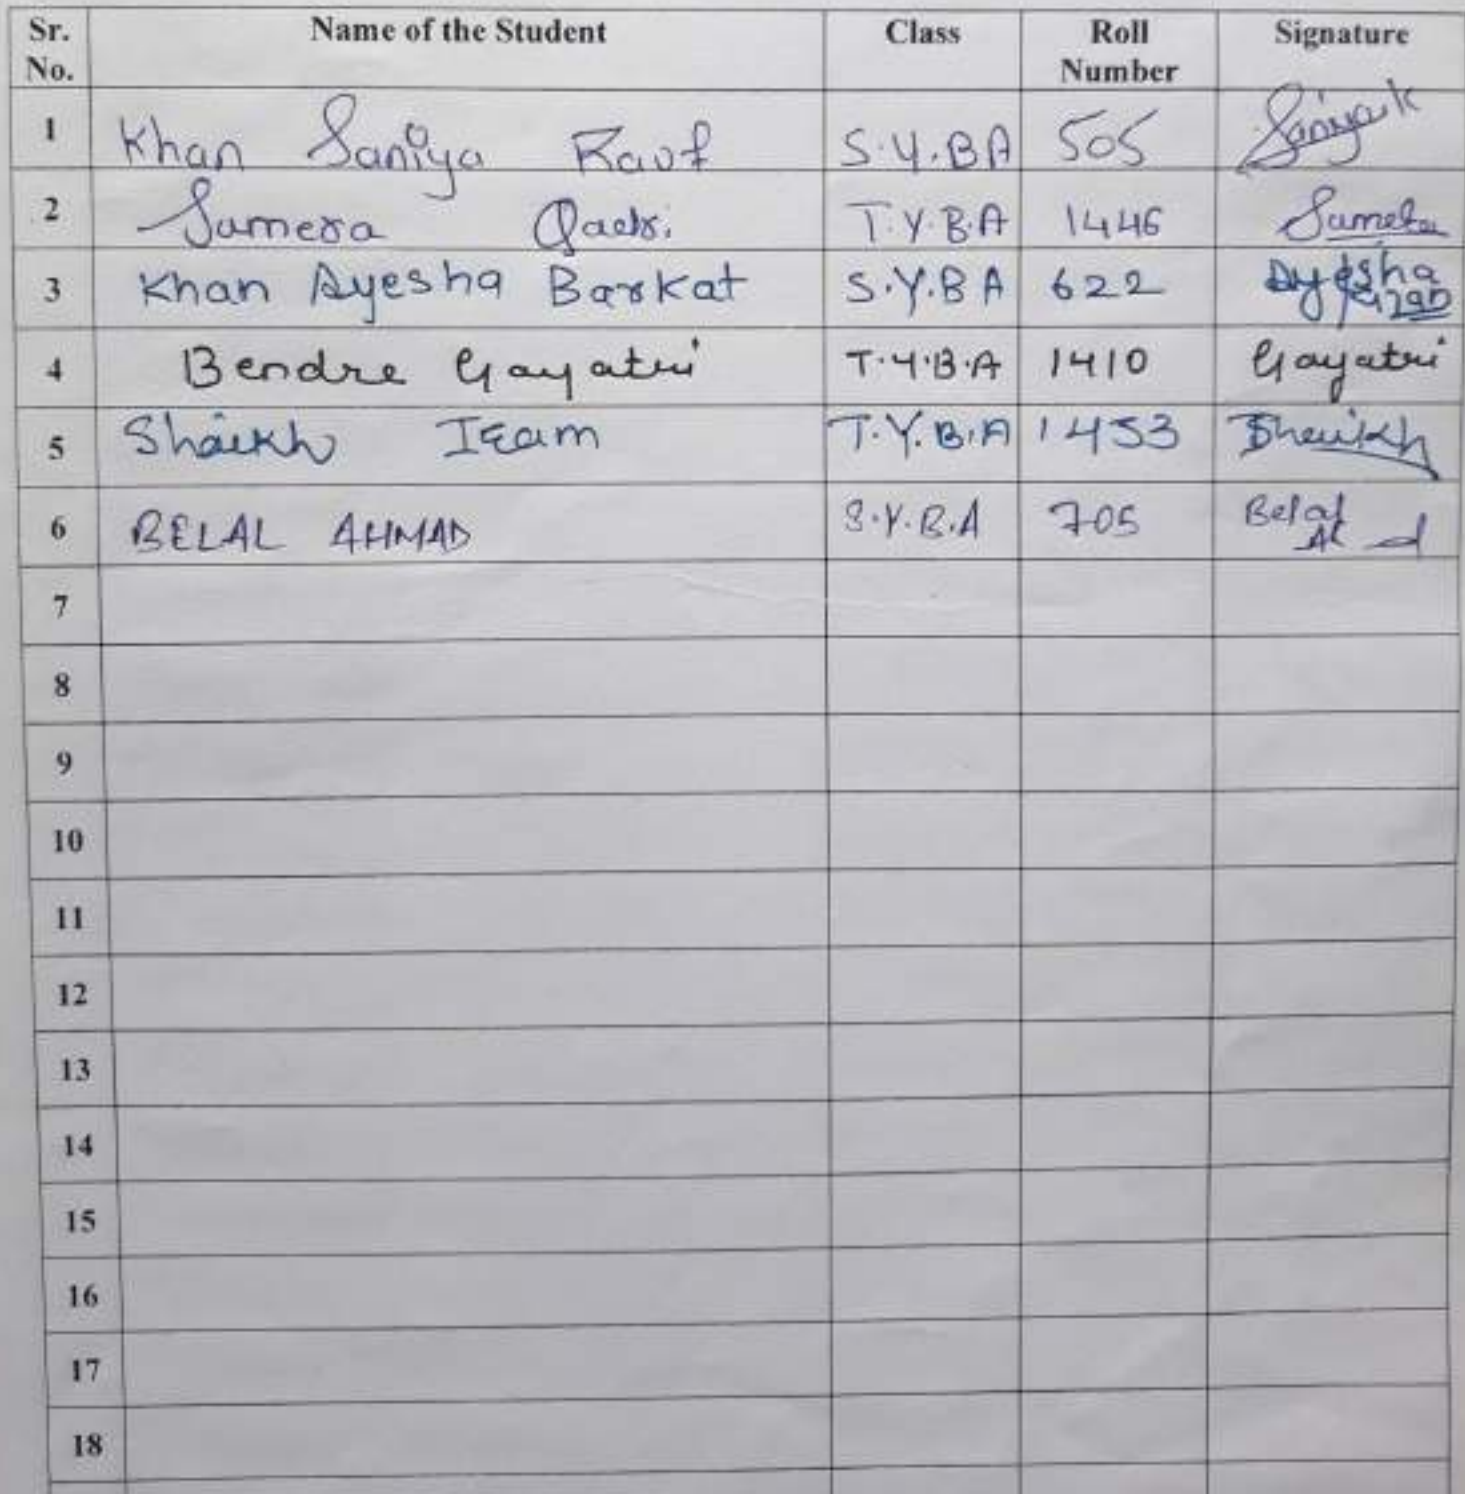 Sr. No. Name of the Student Class Roll Number Signature
1 Khan Saniya Rauf S.Y.BA 505 Saniya k
2 Samera Qadri T.Y.B.A 1446 Samera
3 Khan Ayesha Barkat S.Y.BA 622 Ayesha
4 Bendre Gayatri T.Y.B.A 1410 Gayatri
5 Shaikh T.Y.B.A 1453 Shaikh
6 BELAL AHMAD S.Y.B.A 705 Belal
7
8
9
10
11
12
13
14
15
16
17
18